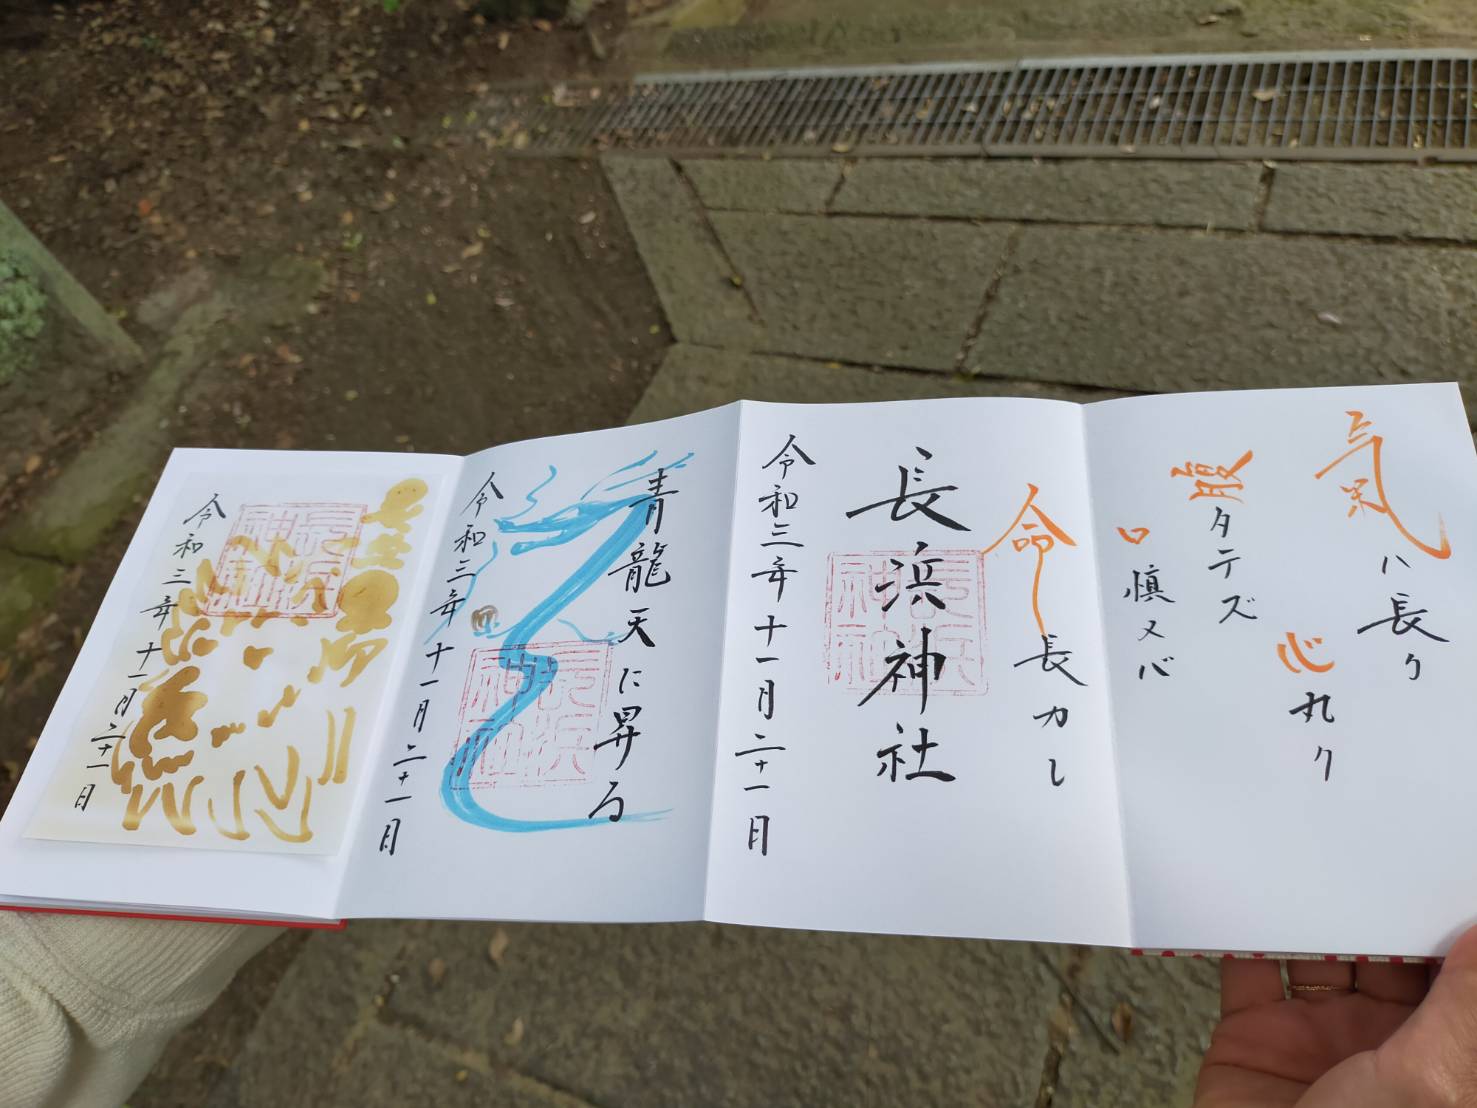 氣ハ長ク
心丸ク
腹タテズ
口慎メバ
命長カレ
長浜神社
令和三年十一月二十一日
青龍天に昇る
令和三年十一月二十一日
令和三年十一月二十一日
長浜神社
長浜神社
長浜神社